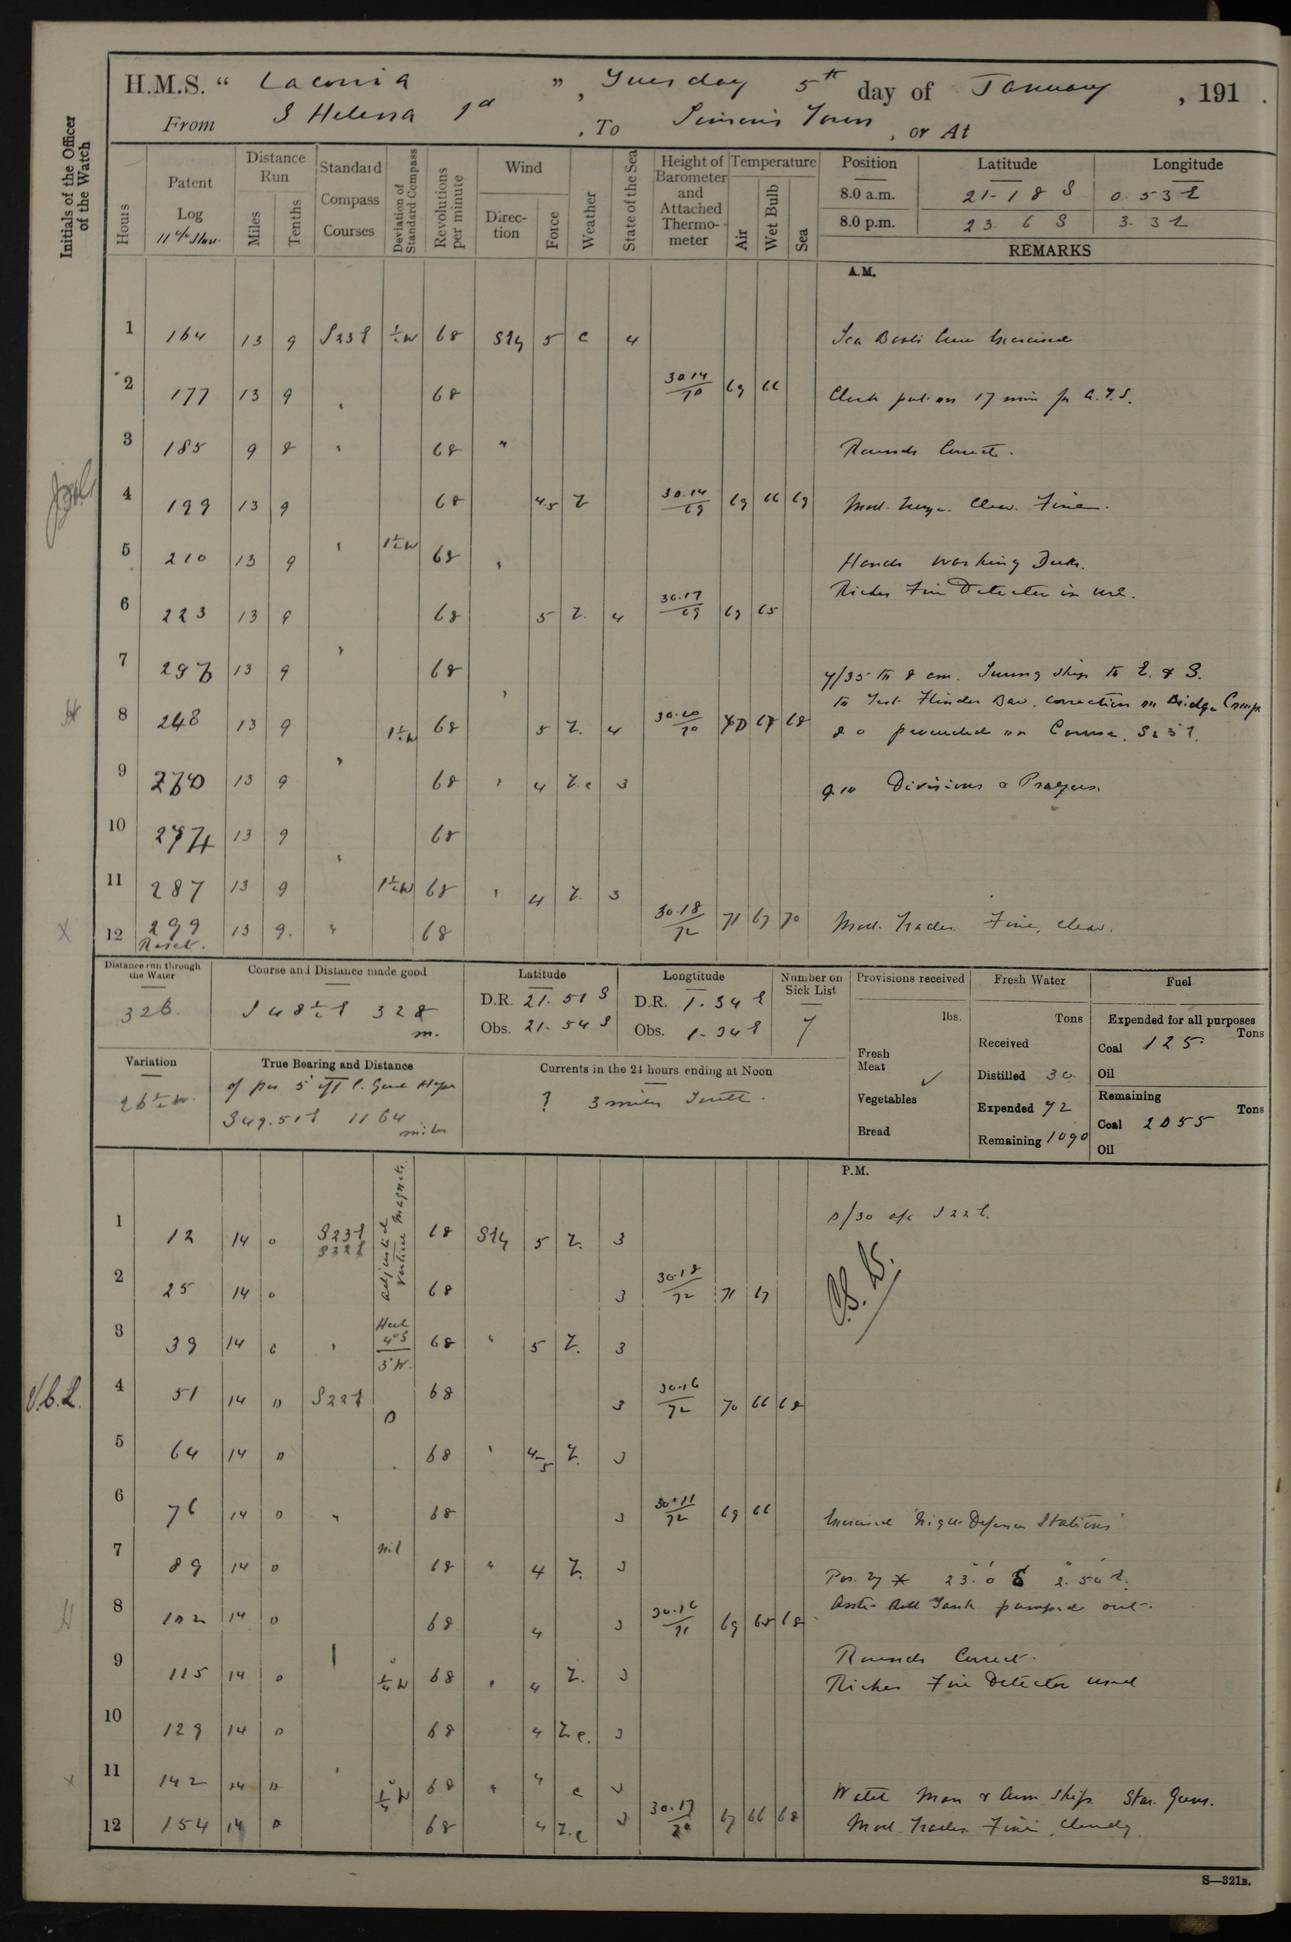 H.M.S. “ Laconia ”, Tuesday 5th day of January, 191 .
From S Helena Id , To Simon's Town , or At
Initials of the Officer of the Watch
Hours
Patent Log
Distance Run
Miles
Tenths
Standard Compass Courses
Deviation of Standard Compass
Revolutions per minute
Wind
Direction
Force
Weather
State of the Sea
Height of Barometer and Attached Thermometer
Temperature
Air
Wet Bulb
Sea
Position Latitude Longitude
8.0 a.m. 21-18 S 0.53 E
8.0 p.m. 23 6 S 3.3 E
REMARKS
A.M.
1 164 13 9 S23E ½W 68 SEly 5 c 4
2 177 13 9 " 68 30.14/70 69 66 Clock put on 17 min for A.T.S.
3 185 9 8 " 68 " Rounds Correct.
4 199 13 9 68 4.5 Z 30.14/69 69 66 69 Clear. Fine.
5 210 13 9 " 1½W 68 " Hands working Decks.
6 223 13 9 68 5 Z. 4 30.17/69 69 65 Riches Fire Detector in use.
7 13 9 " 68 7/35 to 8 am. Swung ship to E. & S.
to Test Flinders Bar. correction on Bridge Comps
8 248 13 9 1½W 68 5 Z. 4 30.20/70 70 67 68 8 0 proceeded on Course. S23E.
9 260 13 9 " 68 " 4 Z.c 3 9.10 Divisions & Prayers
10 274 13 9 68
11 287 13 9 " 1½W 68 " 4 Z. 3
12 299 13 9. " 68 30.18/72 71 67 70 Mod. Trades Fine, clear.
Reset.
Distance run through the Water
326
Course and Distance made good
S 48½ E 328 m.
Latitude
D.R. 21. 51 S
Obs. 21. 54 S
Longtitude
D.R. 1. 34 E
Obs. 1. 34 E
Number on Sick List
7
Provisions received
lbs.
Fresh Meat
Vegetables
Bread
Fresh Water
Tons
Received
Distilled 30
Expended 72
Remaining 1090
Fuel
Expended for all purposes Tons
Coal 125
Oil
Remaining Tons
Coal 2055
Oil
Variation
26½ W.
True Bearing and Distance
of pos 5' off C. Good Hope
S49.51E 1164 miles
Currents in the 24 hours ending at Noon
? 3 miles South.
P.M.
adjusted vertical magnets
1 12 14 0 S23E S22E 68 SEly 5 Z. 3 0/30 a/c S22E.
2 25 14 0 68 3 30.18/72 71 67
3 39 14 0 " Heel 4°S 3°W. 68 " 5 Z. 3
V.C.L.
4 51 14 0 S22E 0 68 3 30.16/72 70 66 68
5 64 14 0 68 " 4-5 Z. 3
6 76 14 0 " 68 3 30.11/72 69 66 Exercised 'Night Defence Stations'
7 89 14 0 nil 68 " 4 Z. 3 Pos. by * 23°.0' S 2°.50' E.
8 102 14 0 68 4 3 30.16/71 69 65 68 Roll Tank pumped out.
Rounds Correct.
9 115 14 0 ¼W 68 " 4 Z. 3 Riches Fire Detector used
10 129 14 0 68 4 Z.c. 3
11 142 14 0 " ¼W 68 " 4 c 3 Watch Man & Arm Ships Star. Guns.
12 154 14 0 68 4 Z.c 3 30.17/70 67 66 68 Mod Trades Fine, cloudy.
S—321B.